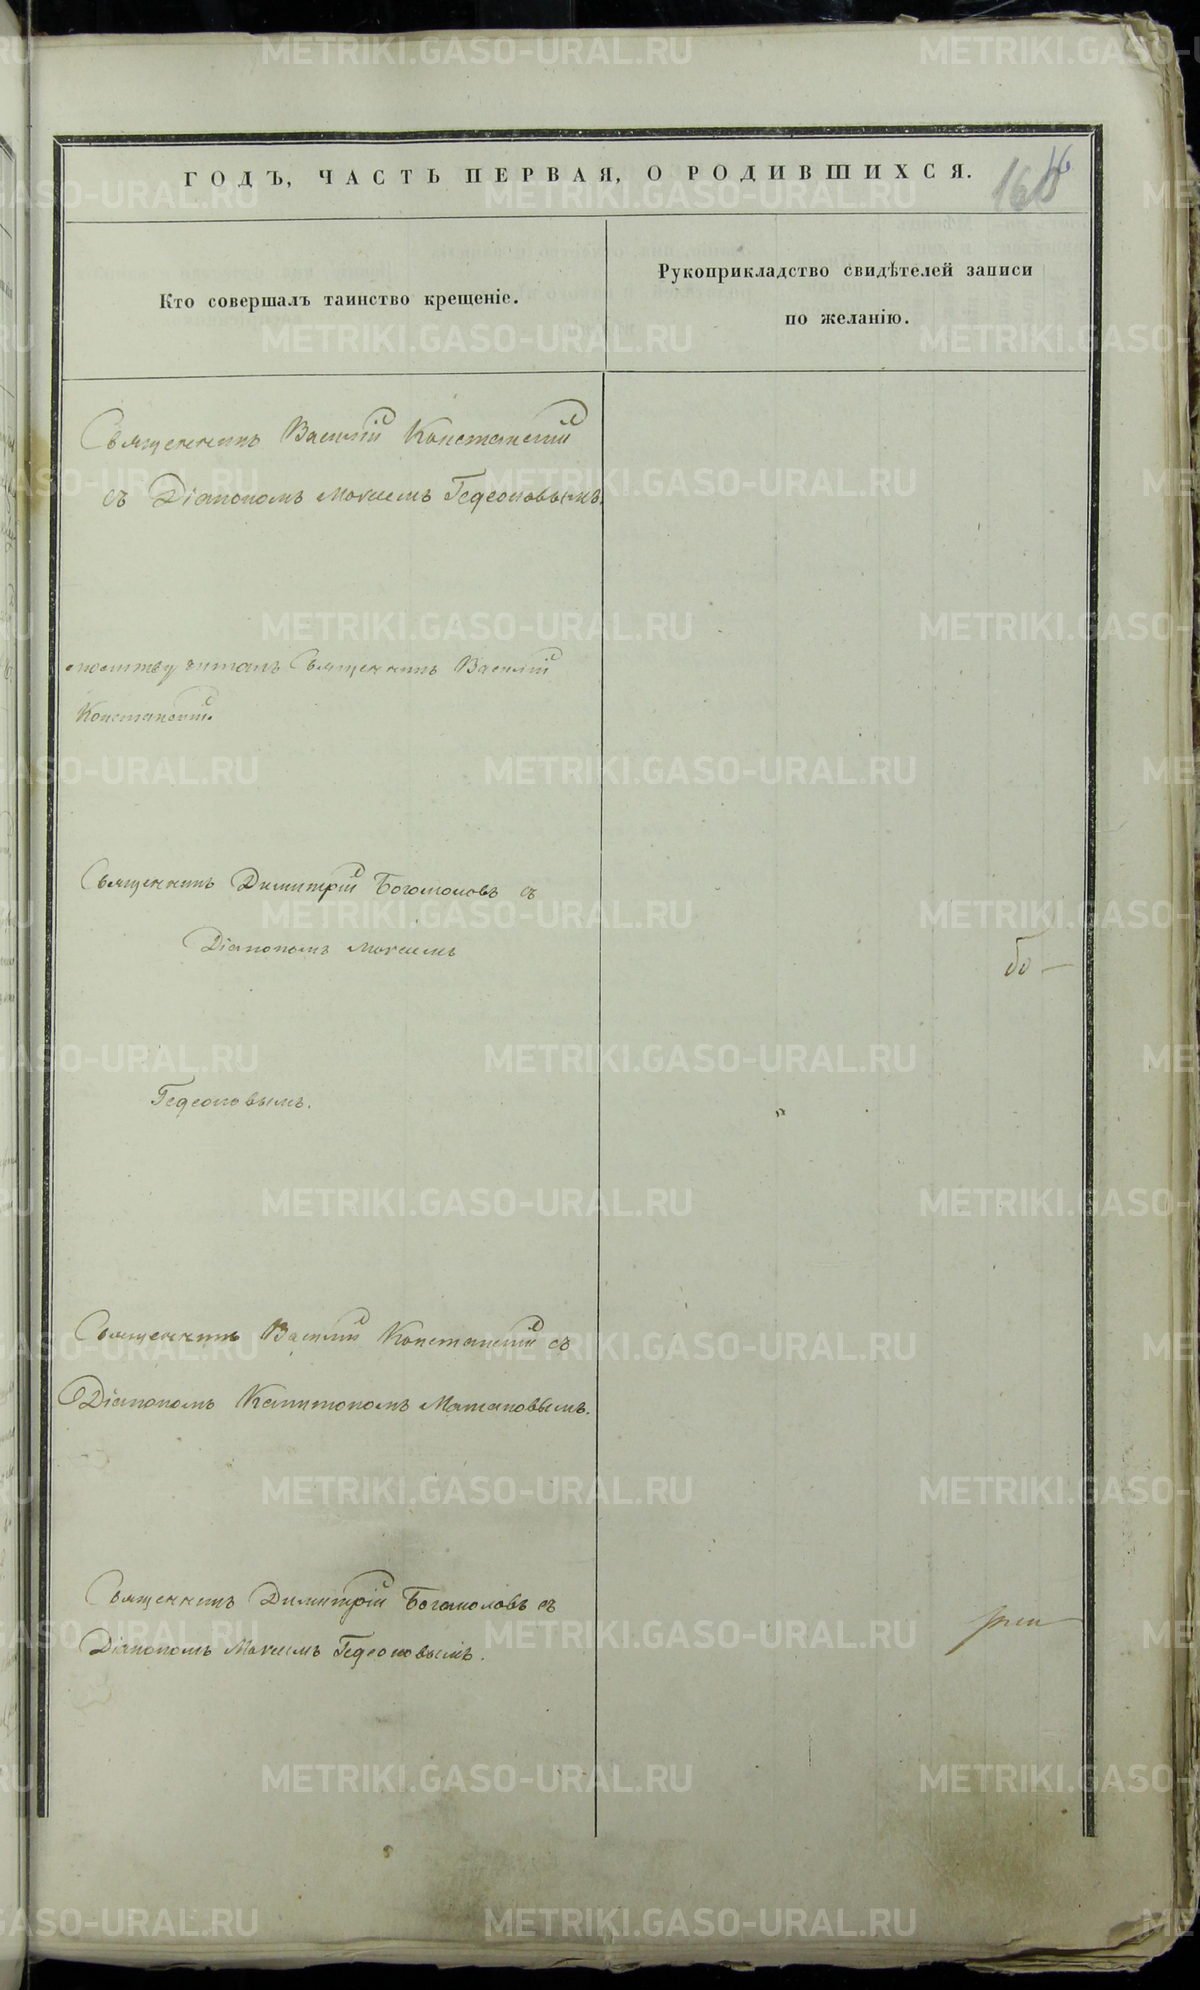 ГОДЪ, ЧАСТЬ ПЕРВАЯ, О РОДИВШИХСЯ.
Кто совершалъ таинство крещеніе.
Рукоприкладство свидѣтелей записи
по желанію.
Священникъ Василій Констанскій
съ Діакономъ Мокиемъ Гедеоновымъ.
молитву читалъ Священникъ Василій
Констанскій.
Священникъ Димитрій Богомоловъ съ
Діакономъ Мокиемъ
Гедеоновымъ.
Священникъ Василій Констанскій съ
Діакономъ Капитономъ
Священникъ Димитрій Богомоловъ съ
Діакономъ Мокиемъ Гедеоновымъ.
METRIKI.GASO-URAL.RU